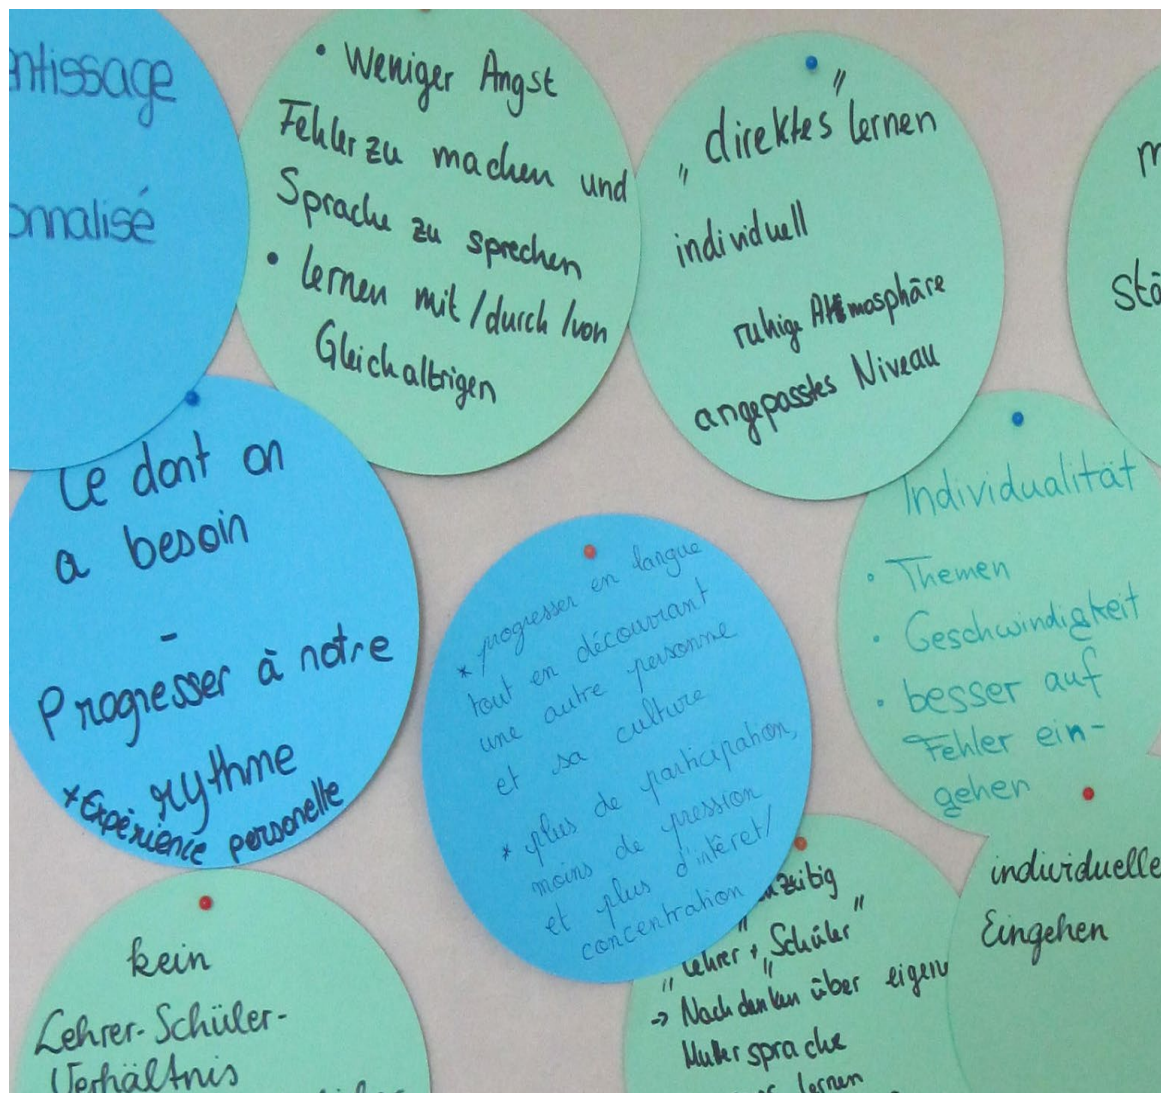 ntissage
onnalisé
• Weniger Angst
Fehler zu machen und
Sprache zu sprechen
• lernen mit / durch / von
Gleichaltrigen
„direktes" lernen
individuell
ruhige Atmosphäre
angepasstes Niveau
m
stä
Ce dont on
a besoin
-
Progresser à notre
rythme
+ Expérience personelle
* progresser en langue
tout en découvrant
une autre personne
et sa culture
* plus de participation,
moins de pression
et plus d'intêret/
concentration
Individualität
• Themen
• Geschwindigkeit
• besser auf
Fehler ein-
gehen
kein
Lehrer-Schüler-
Verhältnis
zeitig
„Lehrer" + „Schüler"
→ Nachdenken über eigene
Muttersprache
lernen
individuelle
Eingehen